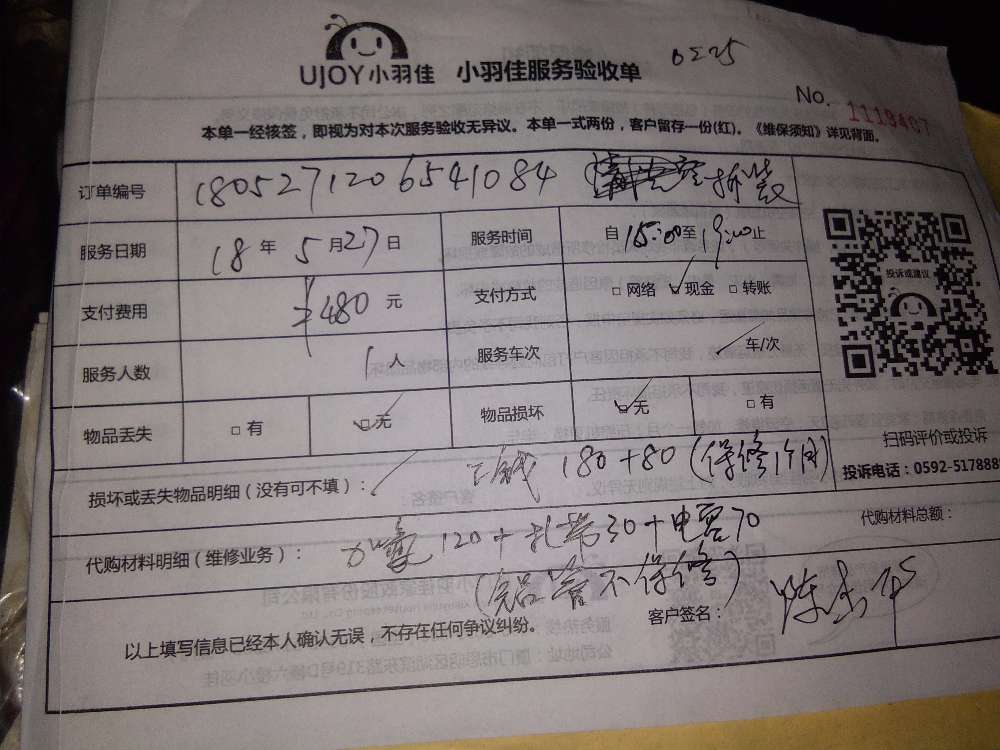 UJOY小羽佳 小羽佳服务验收单 0525
No. 1119407
本单一经核签，即视为对本次服务验收无异议。本单一式两份，客户留存一份(红)。《维保须知》详见背面。
订单编号 1805271206541084 拆装
服务日期 18 年 5 月 27 日 服务时间 自 15:00 至 19:00 止
投诉或建议
支付费用 ¥480 元 支付方式 □ 网络 ☑ 现金 □ 转账
服务人数 1 人 服务车次 / 车/次
物品丢失 □ 有 ☑ 无 物品损坏 ☑ 无 □ 有
扫码评价或投诉
投诉电话：0592-517888
损坏或丢失物品明细（没有可不填）： / 工钱 180+80 (保修1个月)
代购材料总额：
代购材料明细（维修业务）： 加氟 120 + 扎带30 + 电容70
(铝管不保修)
以上填写信息已经本人确认无误，不存在任何争议纠纷。 客户签名： 陈